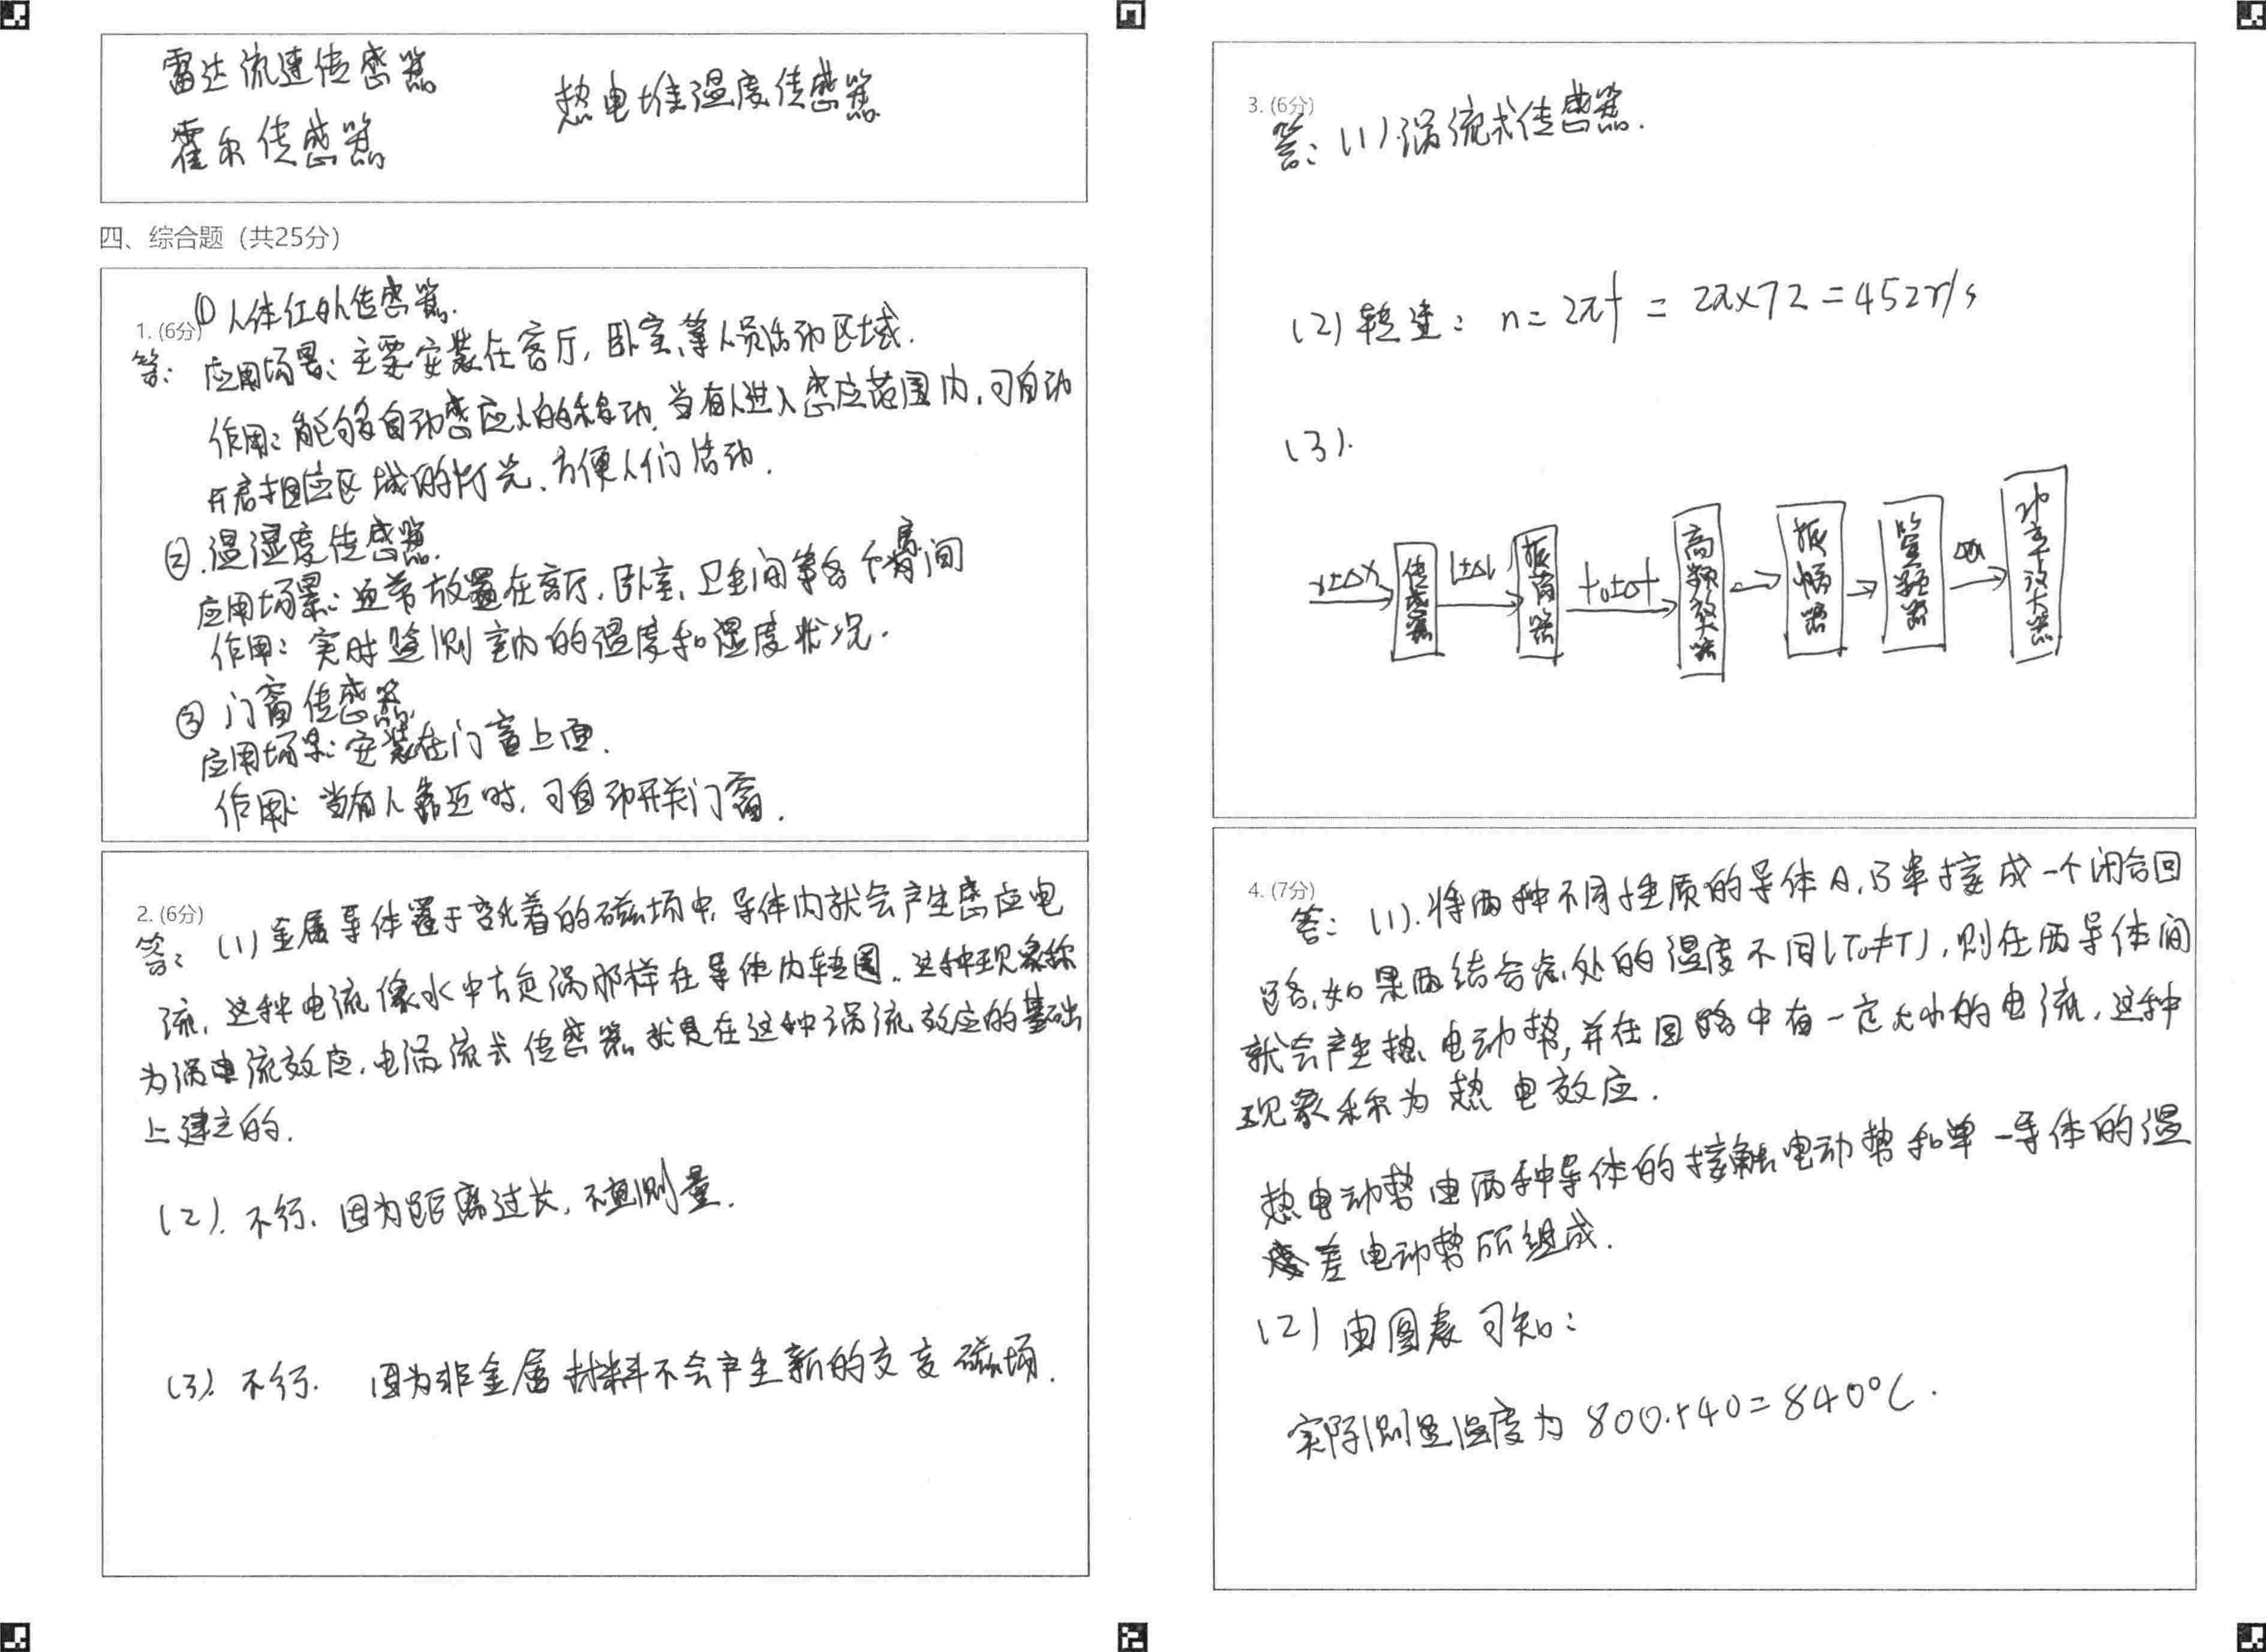 雷达流速传感器
热电堆温度传感器
霍尔传感器
四、综合题（共25分）
1. (6分)
① 人体红外传感器.
答: 应用场景: 主要安装在客厅, 卧室等人员活动区域.
作用: 能够自动感应人的移动, 当有人进入感应范围内, 可自动
开启相应区域的灯光、方便人们活动.
②. 温湿度传感器.
应用场景: 通常放置在客厅, 卧室, 卫生间等各个房间
作用: 实时监测室内的温度和湿度状况.
③ 门窗传感器
应用场景: 安装在门窗上面.
作用: 当有人靠近时, 可自动开关门窗.
2. (6分)
答: (1) 金属导体置于变化着的磁场中, 导体内就会产生感应电
流, 这种电流像水中旋涡那样在导体内转圈. 这种现象称
为涡电流效应, 电涡流式传感器就是在这种涡流效应的基础
上建立的.
(2). 不行. 因为距离过长, 不宜测量.
(3). 不行. 因为非金属材料不会产生新的交变磁场.
3. (6分)
答: (1) 涡流式传感器.
(2) 转速: n = 2πf = 2π×72 = 452r/s
(3).
x±Δx 传感器 L±ΔL 振荡器 f₀±Δf 高频放大器 振幅器 鉴频器 Δu 功率放大器
4. (7分)
答: (1). 将两种不同性质的导体A, B串接成一个闭合回
路, 如果两结合点处的温度不同(T₀≠T), 则在两导体间
就会产生热电动势, 并在回路中有一定大小的电流, 这种
现象称为热电效应.
热电动势由两种导体的接触电动势和单一导体的温
差电动势所组成.
(2) 由图表可知:
实际测量温度为 800+40=840°C.